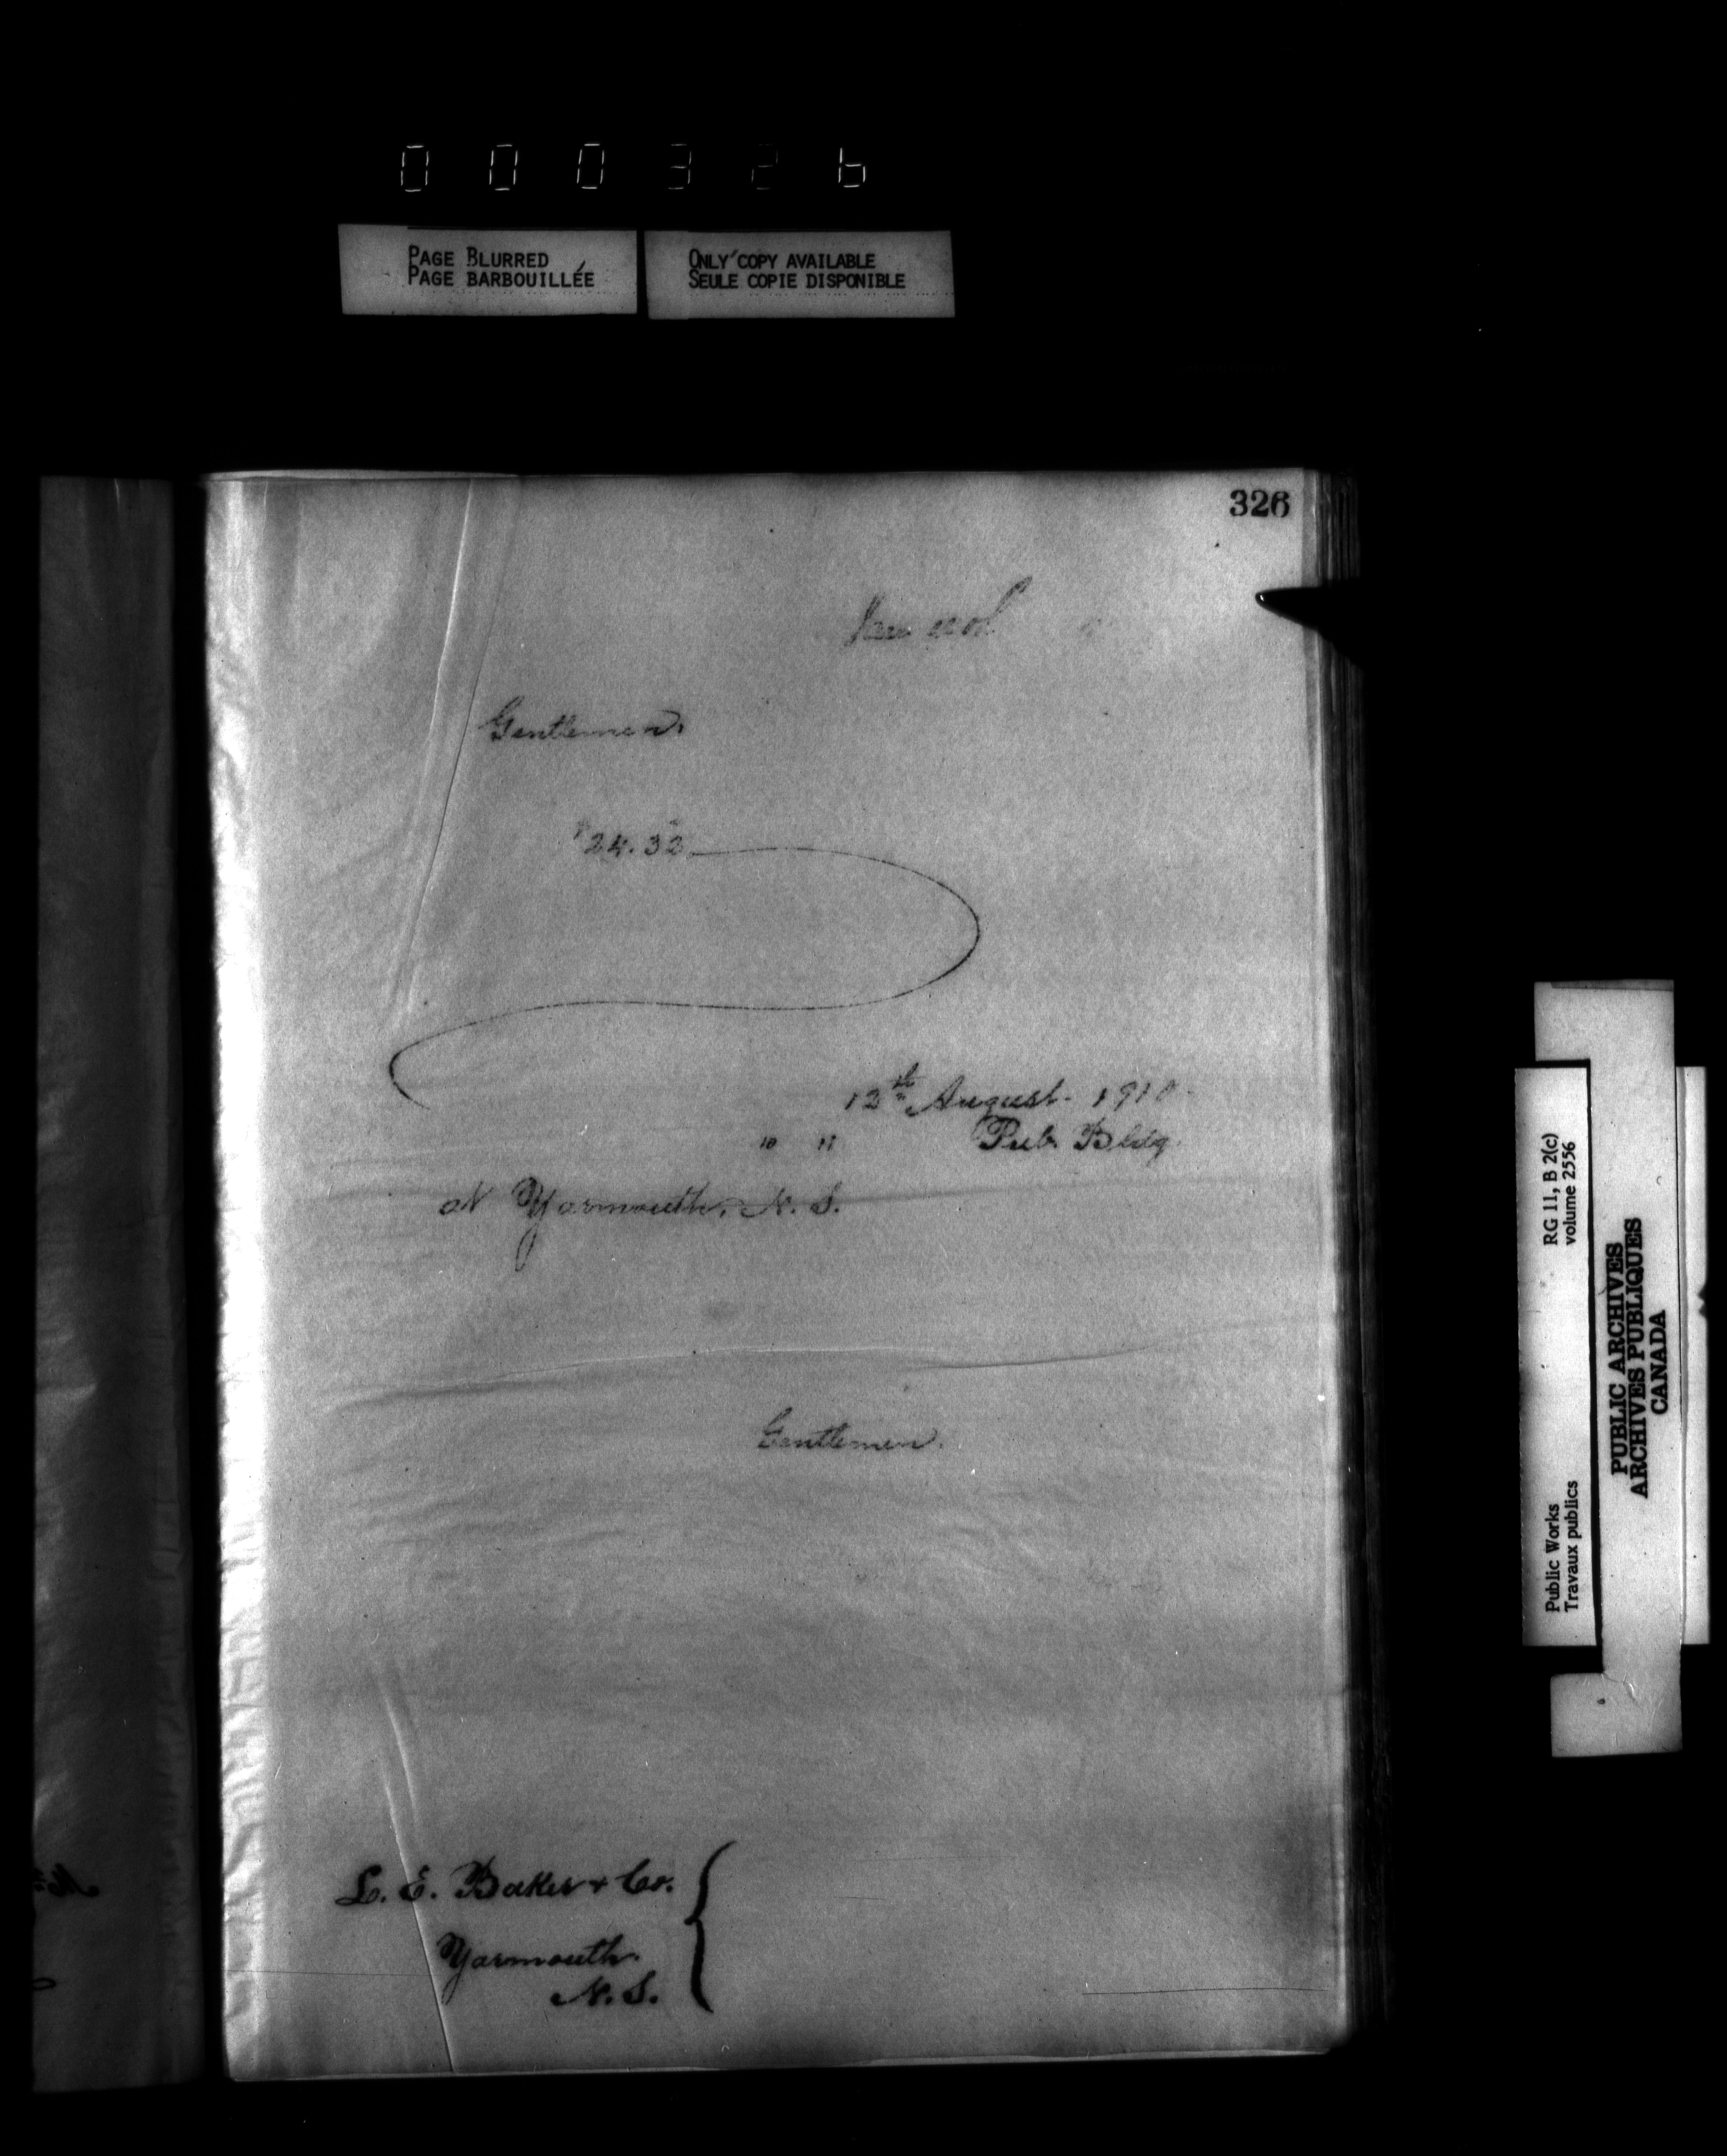 000326
PAGE BLURRED
PAGE BARBOUILLÉE
ONLY COPY AVAILABLE
SEULE COPIE DISPONIBLE
326
Gentlemen,
$24.32
12th August 1910
10 11 Pub. Bldg.
at Yarmouth, N. S.
Gentlemen.
L. E. Baker & Co.
Yarmouth.
N. S.
Public Works
Travaux publics
RG 11, B 2(c)
volume 2556
PUBLIC ARCHIVES
ARCHIVES PUBLIQUES
CANADA